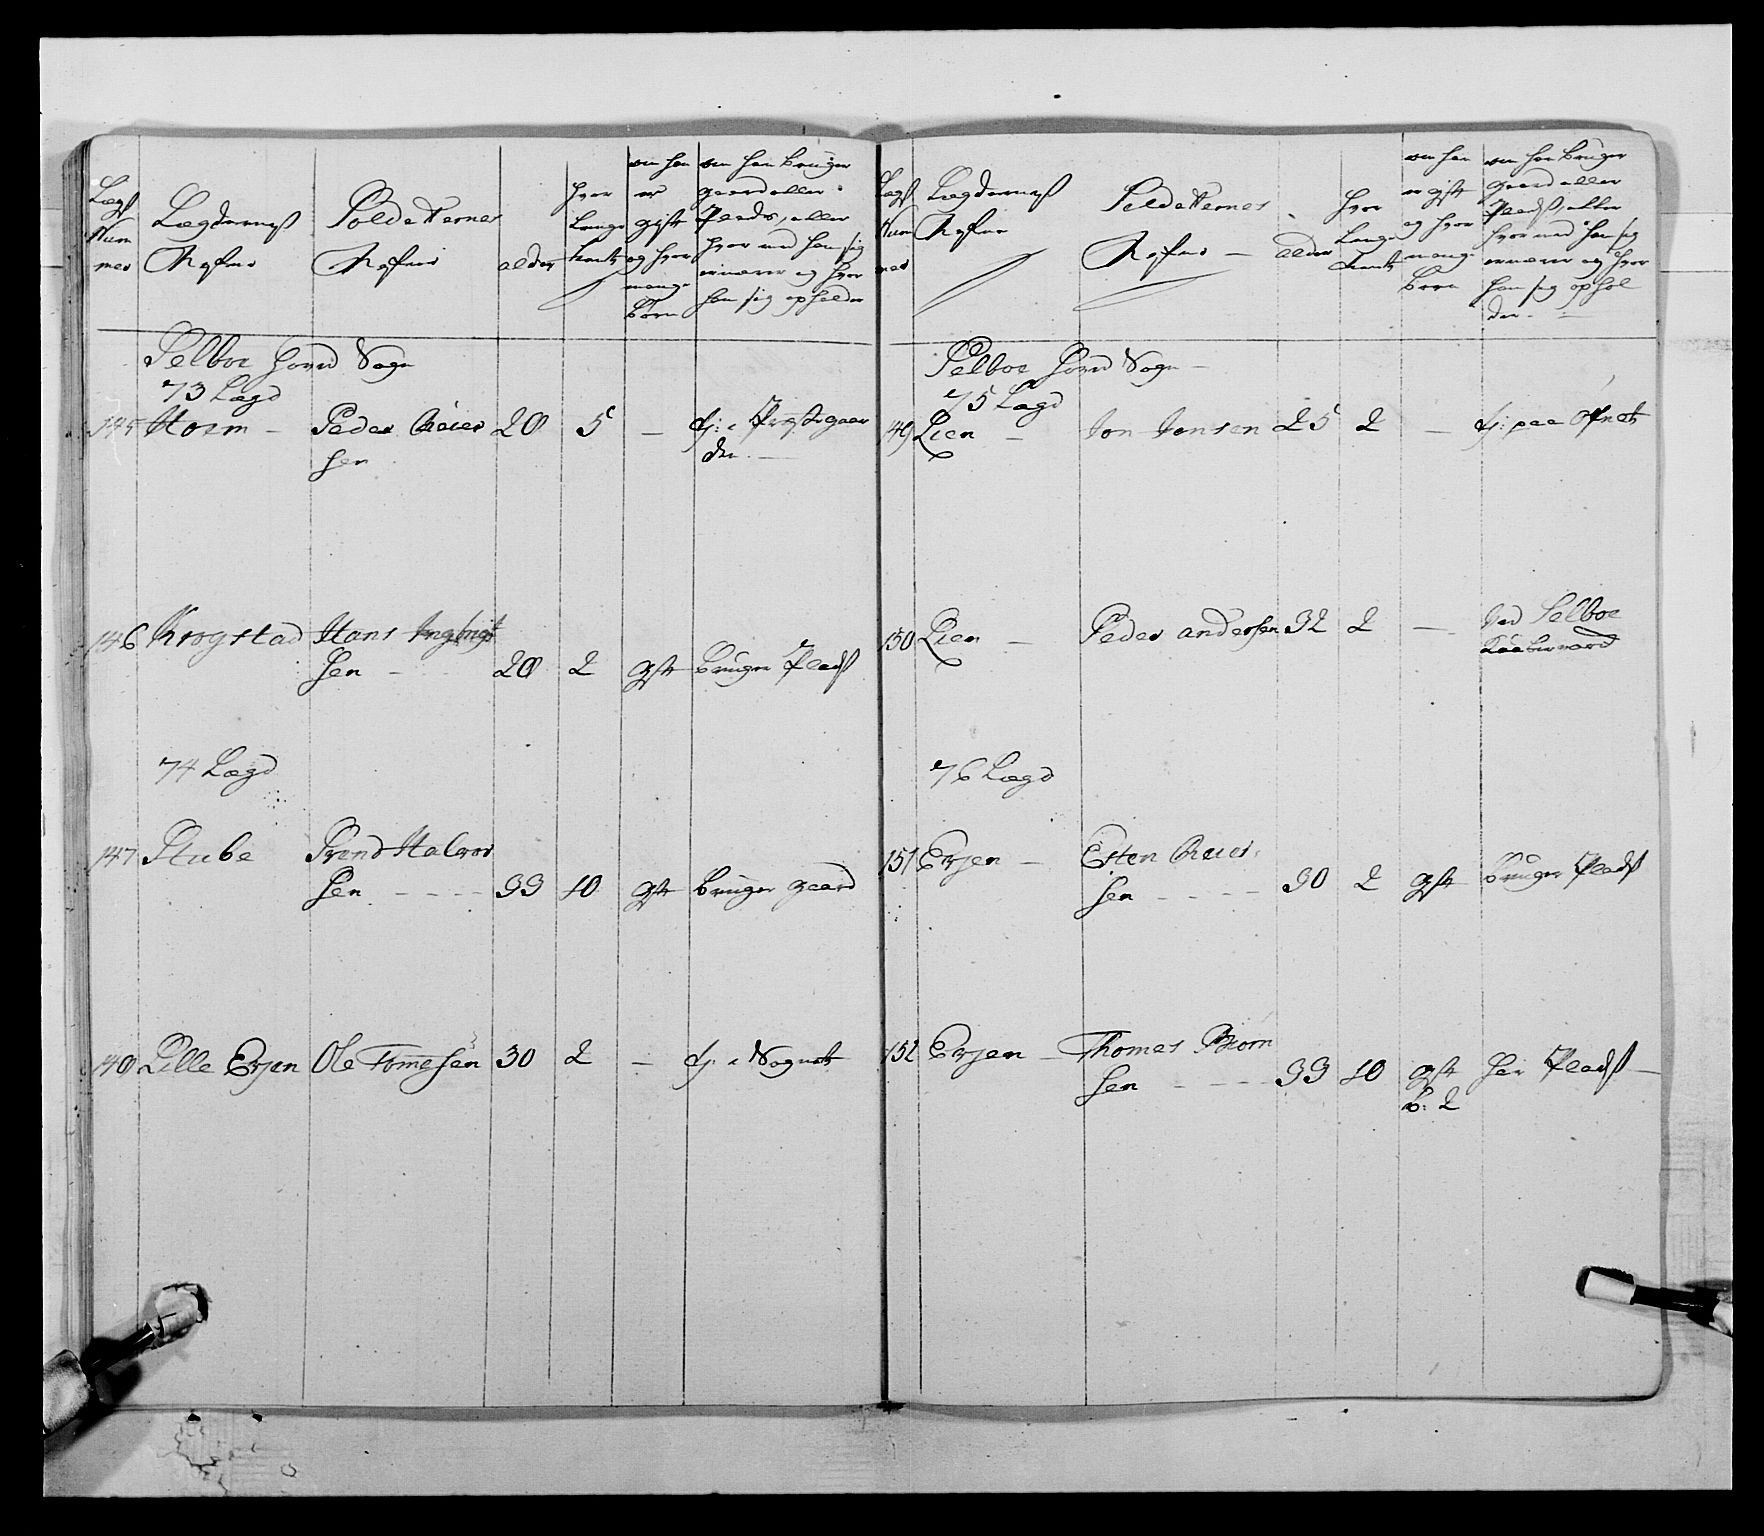 Lægs Num mer
Lægdernes Nafne
Soldatternes Nafne
alder
hvor Længe tient
om han er gift og hvor mange børn
om han bruger gaard eller Plads, eller hvor med han sig ernærer og hvor han sig opholder
Selboe Hoved Sogn
73 Lægd
145 Moem - Peder Reier 20 5 - tj: i Præstegaar
sen den
146 Krogstad Hans Ingbrigt
sen - 28 2 gift bruger Plads
74 Lægd
147 Stube Trend Halvor
sen - - - - 33 10 gift bruger gaard
148 Lille Evjen Ole Tommesen 30 2 - tj: i Sognet
Lægs Num mer
Lægdernes Nafne
Soldatternes Nafne -
alder
hvor Længe tient
om han er gift og hvor mange børn
om han bruger gaard eller Plads, eller hvor med han sig ernærer og hvor han sig ophol der
Selboe Hoved Sogn -
75 Lægd
149 Lien - Jon Jonsen 25 2 - tj: paa
150 Lien - Peder andersen 32 2 - ved Selboe
Kaaberværd
76 Lægd
151 Evjen - Esten Reier
sen - - - - 30 2 gift bruger Plads
152 Evjen - Thomas Biørn
sen - - - - 33 10 gift har Plads -
b: 2